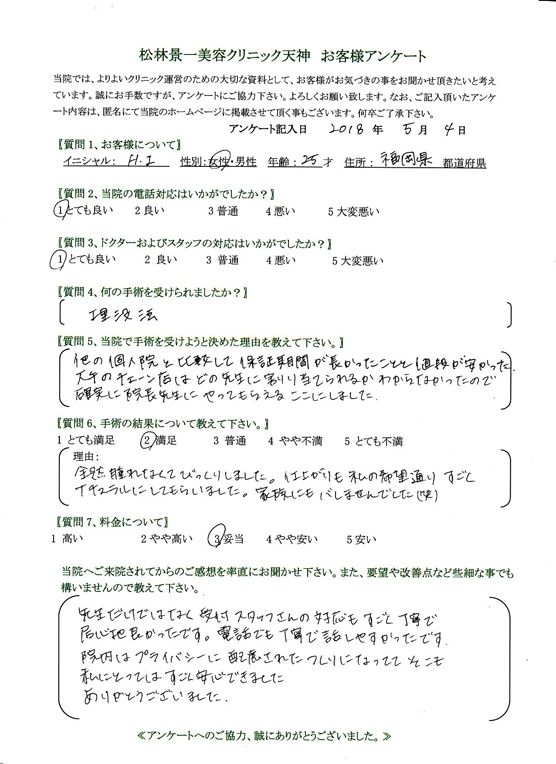 松林景一美容クリニック天神 お客様アンケート
当院では、よりよいクリニック運営のための大切な資料として、お客様がお気づきの事をお聞かせ頂きたいと考え
ています。誠にお手数ですが、アンケートにご協力下さい。よろしくお願い致します。なお、ご記入頂いたアンケ
ート内容は、匿名にて当院のホームページに掲載させて頂く事もございます。何卒ご了承下さい。
アンケート記入日 2018 年 5 月 4 日
〖質問 1、お客様について〗
イニシャル: H.I 性別:女性・男性 年齢:25才 住所: 福岡県 都道府県
〖質問 2、当院の電話対応はいかがでしたか?〗
1とても良い 2 良い 3 普通 4 悪い 5 大変悪い
〖質問 3、ドクターおよびスタッフの対応はいかがでしたか?〗
1 とても良い 2 良い 3 普通 4 悪い 5 大変悪い
〖質問 4、何の手術を受けられましたか?〗
埋没法
〖質問 5、当院で手術を受けようと決めた理由を教えて下さい。〗
他の個人院と比較して保証期間が長かったことと値段が安かった.
大手のチェーン店はどの先生に割り当てられるかわからなかったので
確実に院長先生にやってもらえるここにしました.
〖質問 6、手術の結果について教えて下さい。〗
1 とても満足 2 満足 3 普通 4 やや不満 5 とても不満
理由:
全然腫れなくてびっくりしました。仕上がりも私の希望通りすごく
ナチュラルにしてもらいました。家族にもバレませんでした(笑)
〖質問 7、料金について〗
1 高い 2 やや高い 3 妥当 4 やや安い 5 安い
当院へご来院されてからのご感想を率直にお聞かせ下さい。また、要望や改善点など些細な事でも
構いませんので教えて下さい。
先生だけではなく受付スタッフさんの対応もすごく丁寧で
居心地良かったです。電話でも丁寧で話しやすかったです.
院内はプライバシーに配慮されたつくりになってて そこも
私にとってはすごく安心できました
ありがとうございました.
≪アンケートへのご協力、誠にありがとうございました。≫